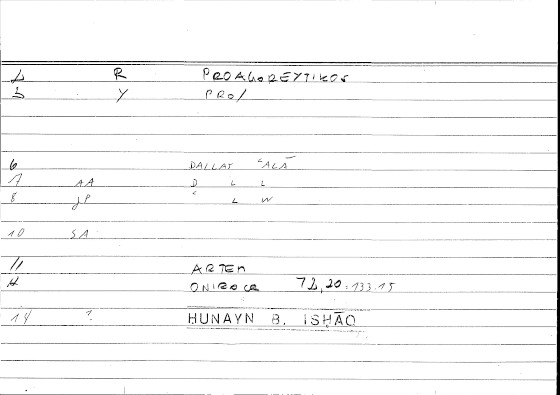 2 R PROAGOREYTIKOS
3 Y PRO/
6 DALLAT ʿALĀ
7 AA D L L
8 JP ʿ L W
10 SA
11 ARTEM
ONIROCR 72,20 = 133.15
14 1. HUNAYN B. ISHĀQ